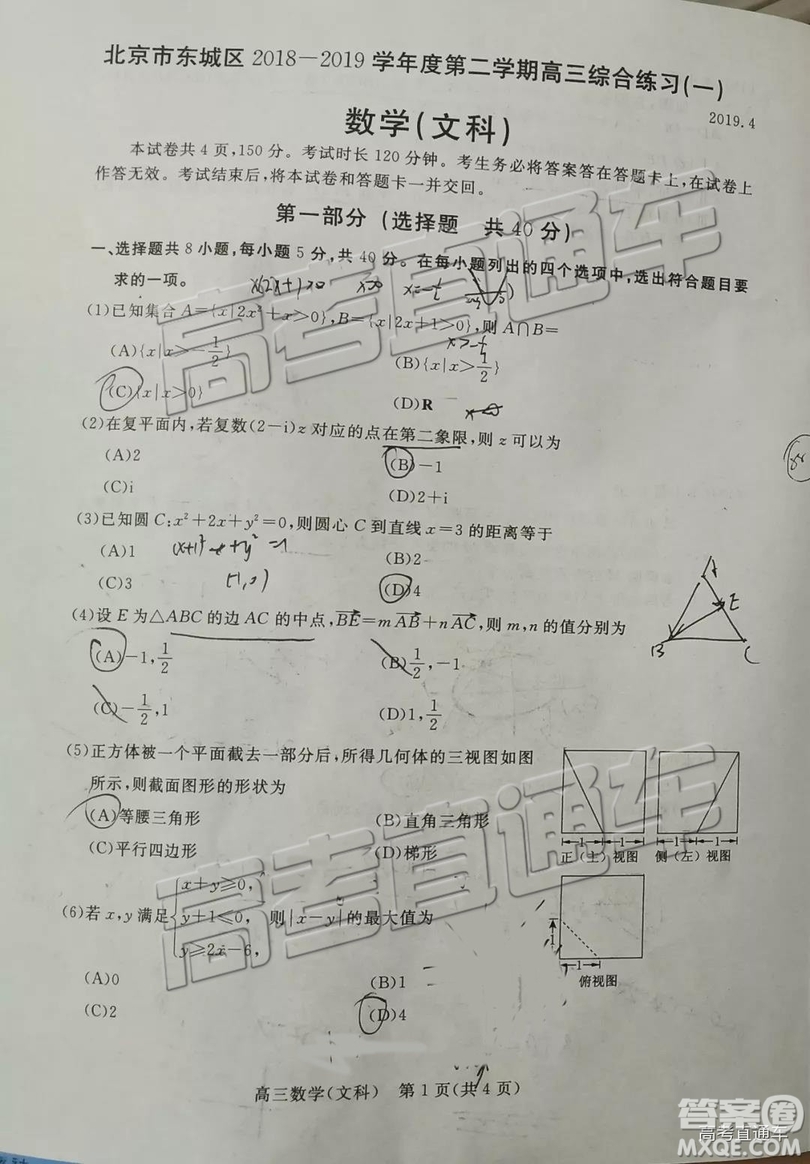 北京市东城区 2018—2019 学年度第二学期高三综合练习(一)
2019.4
数学(文科)
本试卷共 4 页,150 分。考试时长 120 分钟。考生务必将答案答在答题卡上,在试卷上
作答无效。考试结束后,将本试卷和答题卡一并交回。
第一部分 (选择题 共 40 分)
一、选择题共 8 小题,每小题 5 分,共 40 分。在每小题列出的四个选项中,选出符合题目要
求的一项。
x(2x+1)>0
(1)已知集合 A={x|2x²+x>0},B={x|2x+1>0},则 A∩B=
(A){x|x>-1/2}
(B){x|x>1/2}
(C){x|x>0}
(D)R
(2)在复平面内,若复数(2-i)z 对应的点在第二象限,则 z 可以为
(A)2
(B)-1
(C)i
(D)2+i
(3)已知圆 C:x²+2x+y²=0,则圆心 C 到直线 x=3 的距离等于
(A)1
(B)2
(C)3
(-1,0)
(D)4
(4)设 E 为△ABC 的边 AC 的中点,BE=mAB+nAC,则 m,n 的值分别为
A
E
B
C
(A)-1,1/2
(B)1/2,-1
(C)-1/2,1
(D)1,1/2
(5)正方体被一个平面截去一部分后,所得几何体的三视图如图
所示,则截面图形的形状为
(A)等腰三角形
(B)直角三角形
(C)平行四边形
(D)梯形
1 1 1 1
正(主)视图 侧(左)视图
1
1
俯视图
(6)若 x,y 满足{x+y≥0, y+1≤0, y≥2x-6, 则|x-y|的最大值为
(A)0
(B)1
(C)2
(D)4
高三数学(文科) 第 1 页(共 4 页)
高考直通车
高考直通车
答案圈
高考直通车
MXQE.COM